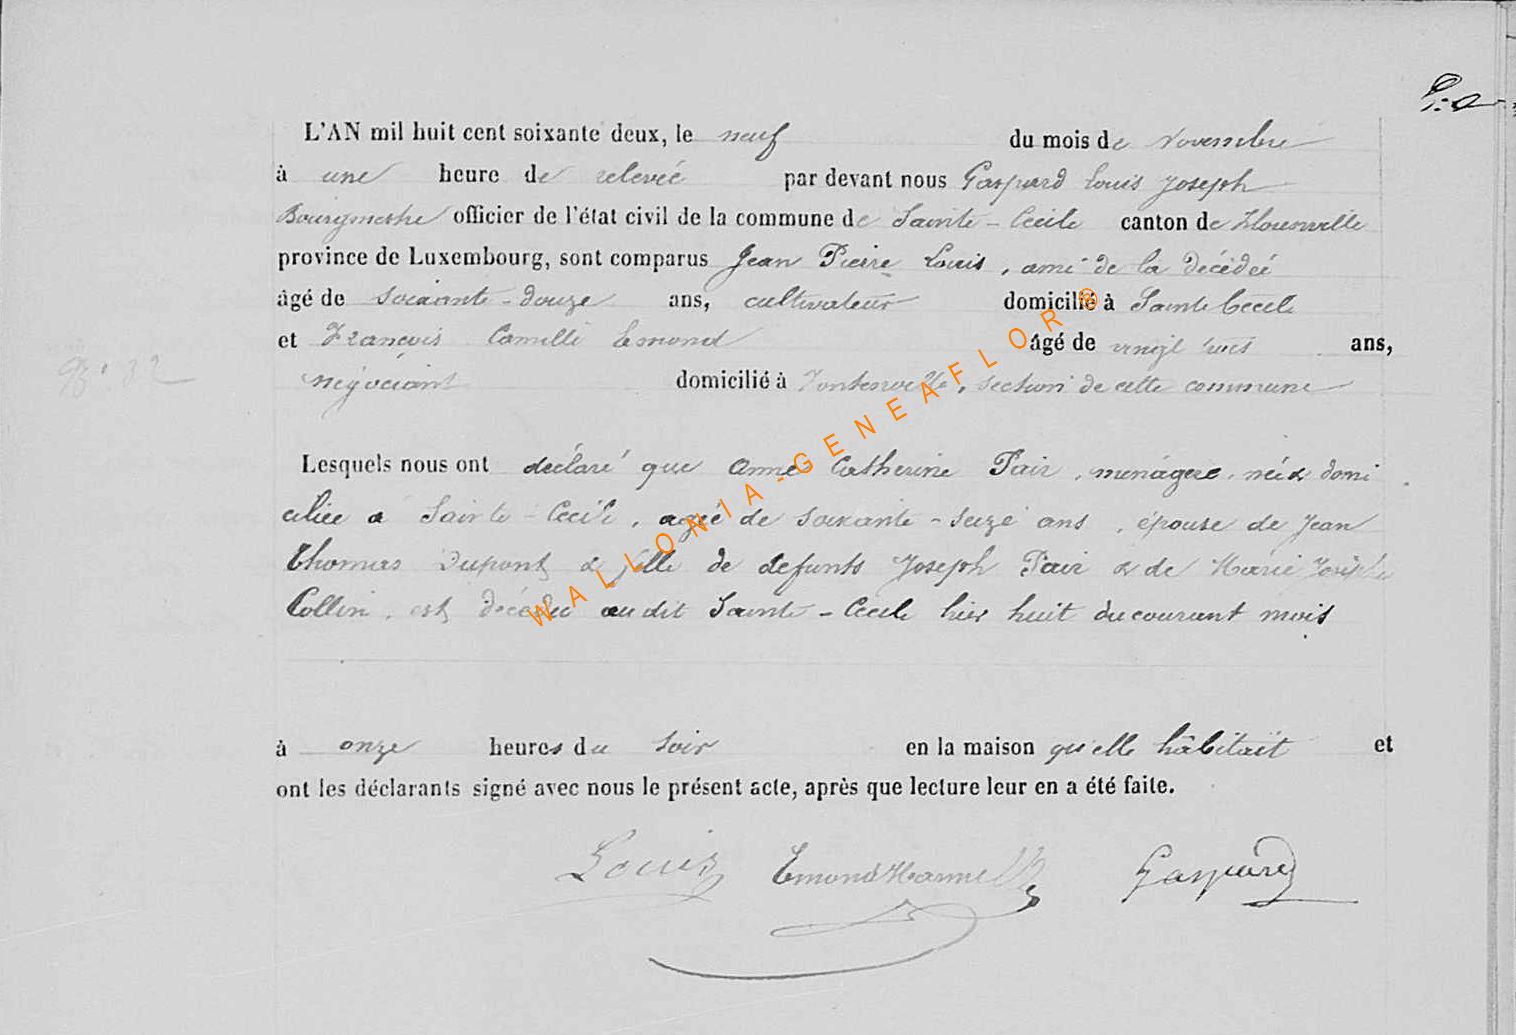 L'AN mil huit cent soixante deux, le neuf du mois de Novembre
à une heure de relevée par devant nous Gaspard Louis Joseph
Bourgmestre officier de l'état civil de la commune de Sainte-Cecile canton de Florenville
province de Luxembourg, sont comparus Jean Pierre Louis, ami de la décédée
âgé de soixante-douze ans, cultivateur domicilié à Sainte Cecile
et François Camille Emond âgé de vingt trois ans,
N° 32
négociant domicilié à Fontenoille, section de cette commune
Lesquels nous ont déclaré que Anne Catherine Pair, ménagère, née & domi
ciliée à Sainte-Cecile, agée de soixante-seize ans, épouse de Jean
Thomas Dupont & fille de défunts Joseph Pair & de Marie Josèphe
Collin, est décédée au dit Sainte-Cecile hier huit du courant mois
à onze heures du soir en la maison qu'elle habitait et
ont les déclarants signé avec nous le présent acte, après que lecture leur en a été faite.
Louis Emond Gaspard
WALLONIA-GENEAFLOR®